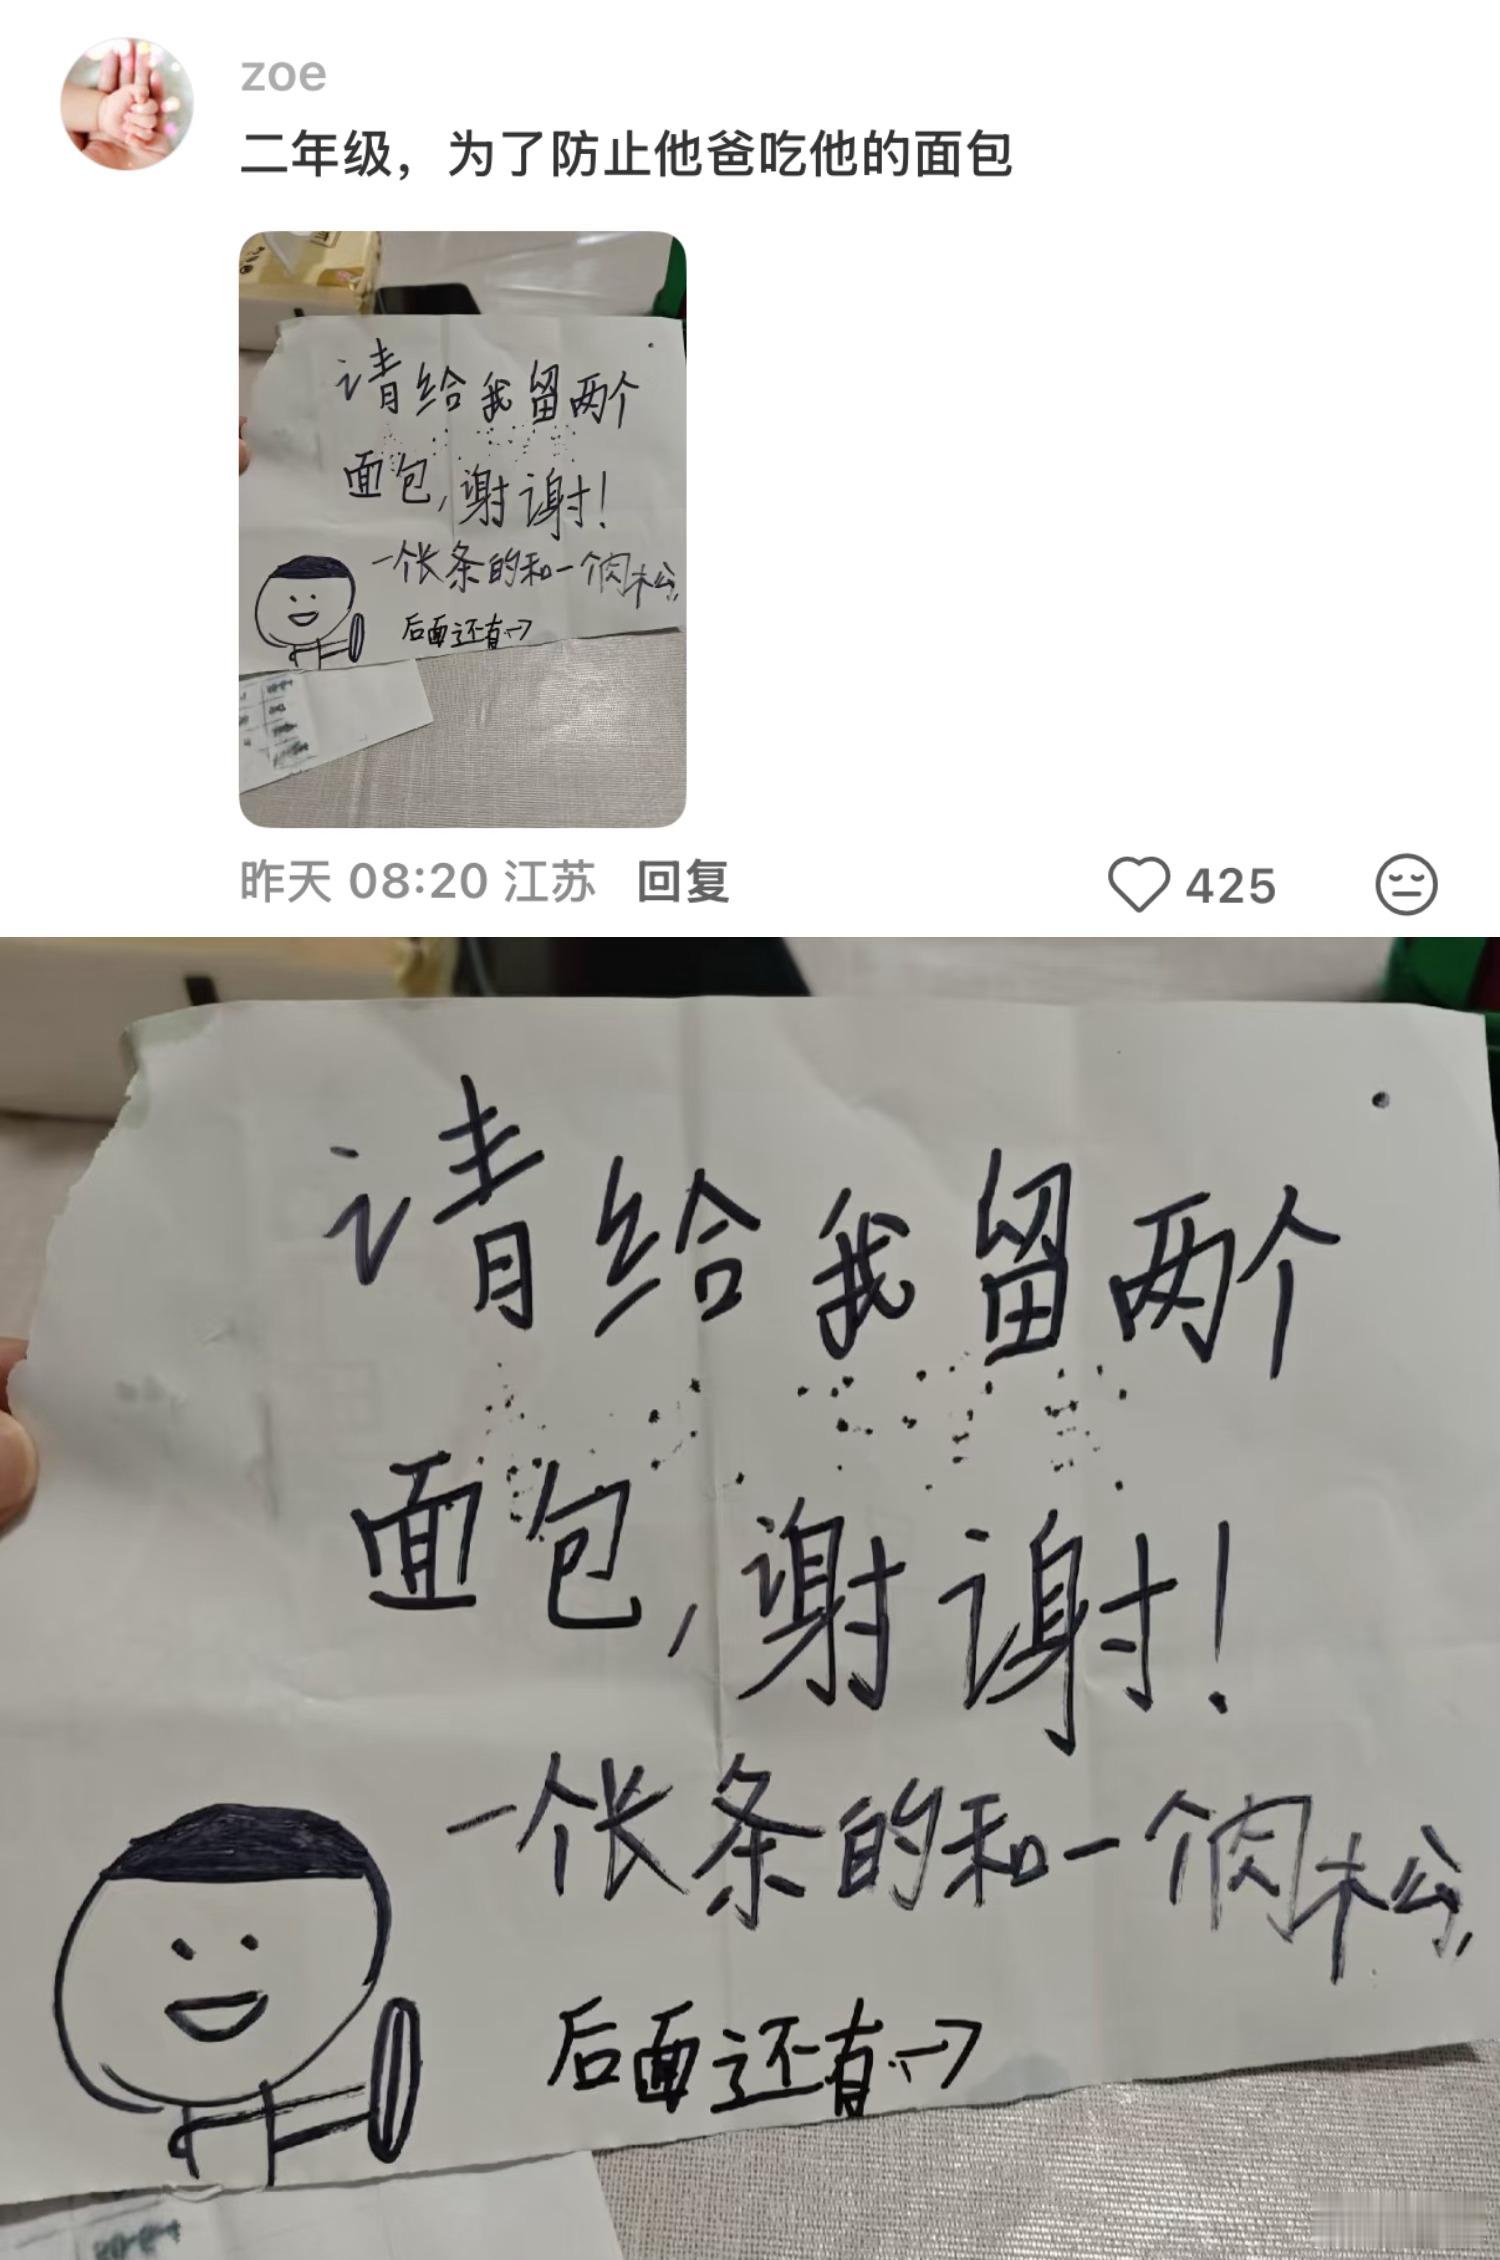 zoe
二年级，为了防止他爸吃他的面包
请给我留两个
面包，谢谢！
一个长条的和一个肉松，
后面还有→
昨天 08:20 江苏 回复
425
请给我留两个
面包，谢谢！
一个长条的和一个肉松，
后面还有→